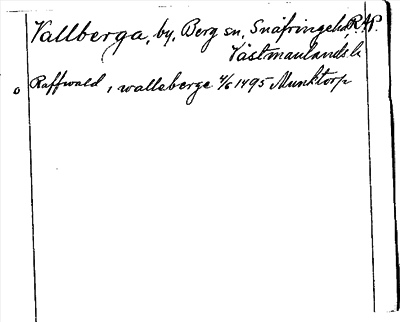 Vallberga, by, Berg sn, Snäfringe hd, R.A.P.
Västmanlands l.
o Raffwald, i wallaberge 4/6 1495 Munktorp